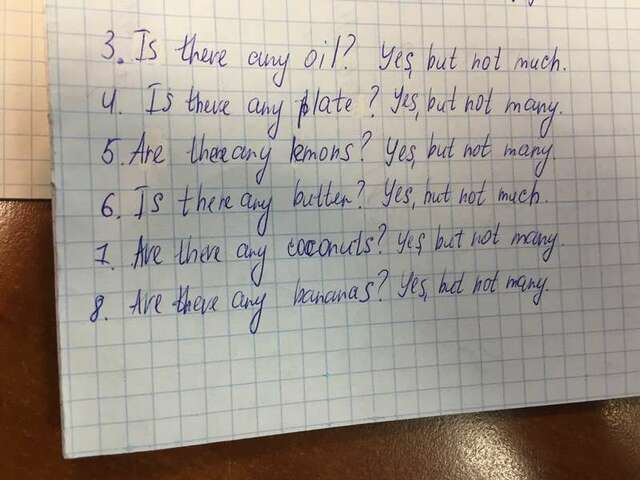 3. Is there any oil? Yes, but not much.
4. Is there any plate? Yes, but not many.
5. Are there any lemons? Yes, but not many
6. Is there any butter? Yes, but not much.
7. Are there any coconuts? Yes, but not many.
8. Are there any bananas? Yes, but not many.